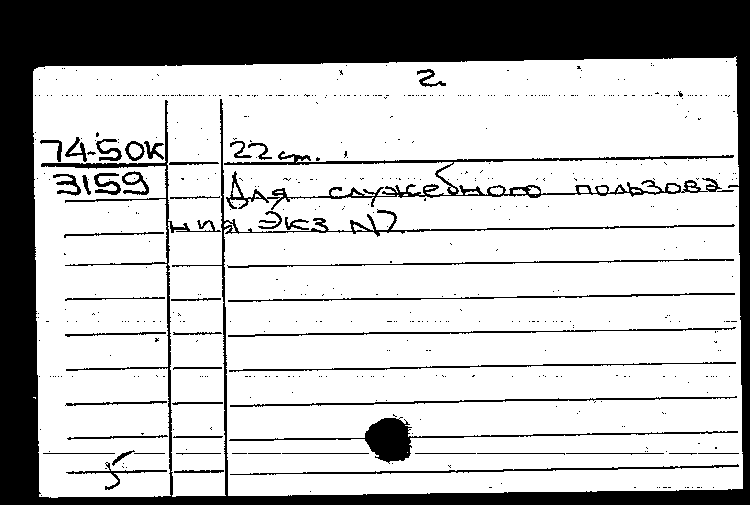 2.
74-50К 22 ст.
3159 Для служебного пользова-
ния. Экз N7
5